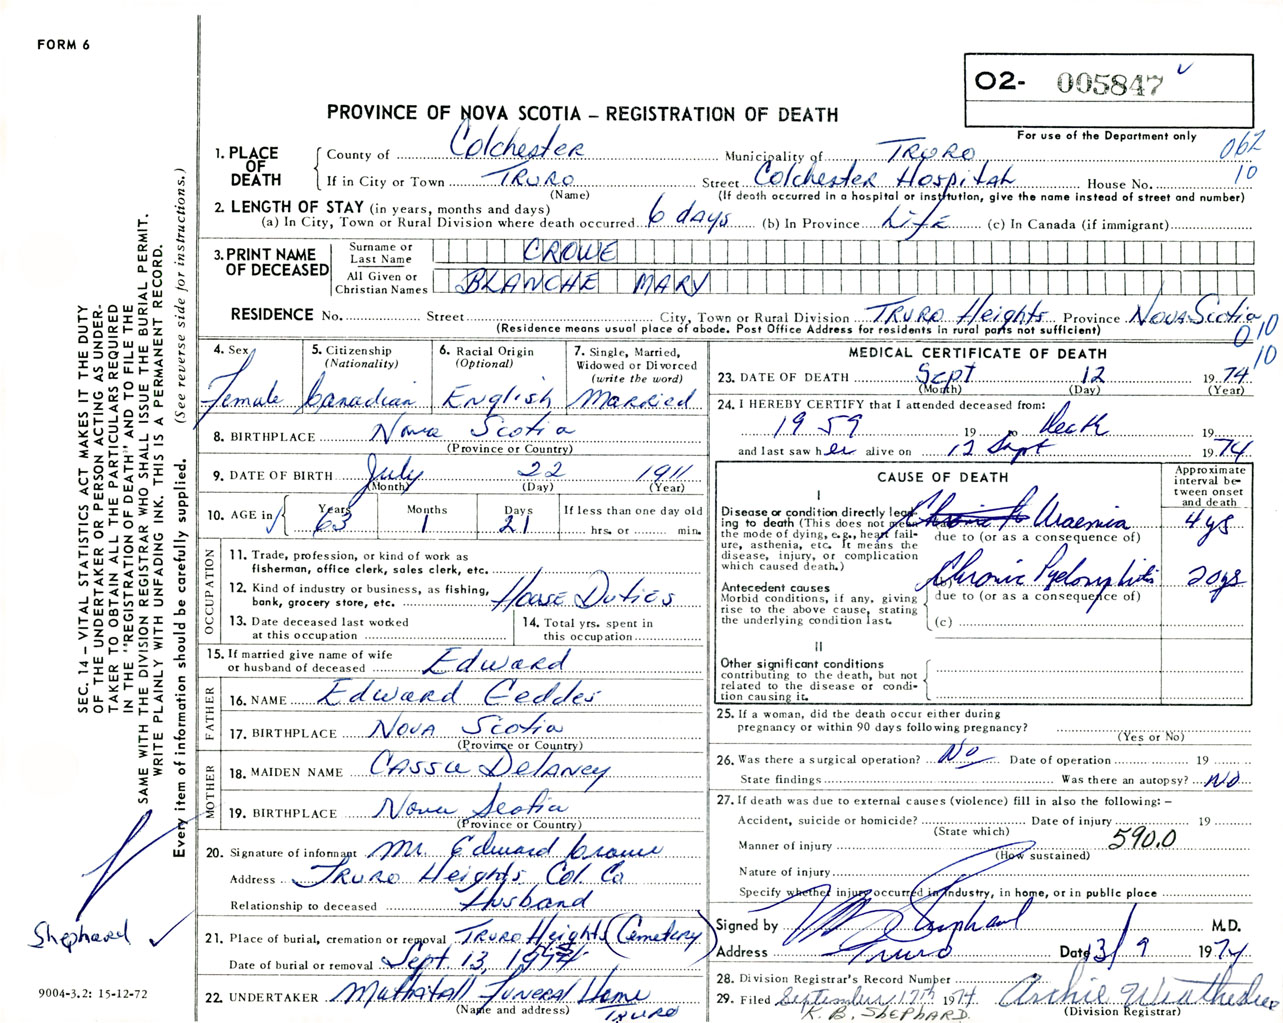 FORM 6
O2- 005847
For use of the Department only
PROVINCE OF NOVA SCOTIA – REGISTRATION OF DEATH
062
10
1. PLACE OF DEATH
County of Colchester Municipality of TRURO
If in City or Town TRURO Street Colchester Hospital House No.
(Name) (If death occurred in a hospital or institution, give the name instead of street and number)
2. LENGTH OF STAY (in years, months and days)
(a) In City, Town or Rural Division where death occurred 6 days (b) In Province Life (c) In Canada (if immigrant)
3. PRINT NAME OF DECEASED
Surname or Last Name CROWE
All Given or Christian Names BLANCHE MARY
RESIDENCE No. Street City, Town or Rural Division TRURO Heights Province Nova Scotia
(Residence means usual place of abode. Post Office Address for residents in rural parts not sufficient)
010
10
4. Sex Female
5. Citizenship (Nationality) Canadian
6. Racial Origin (Optional) English
7. Single, Married, Widowed or Divorced (write the word) Married
8. BIRTHPLACE Nova Scotia
(Province or Country)
9. DATE OF BIRTH July 22 1911
(Month) (Day) (Year)
10. AGE in Years 63 Months 1 Days 21 If less than one day old hrs. or min.
OCCUPATION
11. Trade, profession, or kind of work as fisherman, office clerk, sales clerk, etc.
12. Kind of industry or business, as fishing, bank, grocery store, etc. House Duties
13. Date deceased last worked at this occupation
14. Total yrs. spent in this occupation
15. If married give name of wife or husband of deceased Edward
FATHER
16. NAME Edward Geddes
17. BIRTHPLACE Nova Scotia
(Province or Country)
MOTHER
18. MAIDEN NAME Cassie Delaney
19. BIRTHPLACE Nova Scotia
(Province or Country)
20. Signature of informant Mr. Edward Crowe
Address Truro Heights Col. Co
Relationship to deceased Husband
21. Place of burial, cremation or removal TRURO Heights (Cemetery)
Date of burial or removal Sept. 13, 1974
22. UNDERTAKER Funeral Home
(Name and address) TRURO
MEDICAL CERTIFICATE OF DEATH
23. DATE OF DEATH Sept 12 1974
(Month) (Day) (Year)
24. I HEREBY CERTIFY that I attended deceased from:
1959 19 to death 19
and last saw her alive on 12 Sept 1974
CAUSE OF DEATH
Approximate interval between onset and death
I
Disease or condition directly leading to death (This does not mean the mode of dying, e.g., heart failure, asthenia, etc. It means the disease, injury, or complication which caused death.)
Chronic Uraemia 4 ys
due to (or as a consequence of)
Antecedent causes
Morbid conditions, if any, giving rise to the above cause, stating the underlying condition last.
Chronic 20 ys
due to (or as a consequence of)
(c)
II
Other significant conditions contributing to the death, but not related to the disease or condition causing it.
25. If a woman, did the death occur either during pregnancy or within 90 days following pregnancy?
(Yes or No)
26. Was there a surgical operation? No Date of operation 19
State findings Was there an autopsy? No
27. If death was due to external causes (violence) fill in also the following: –
Accident, suicide or homicide? Date of injury 19
(State which)
Manner of injury 590.0
(How sustained)
Nature of injury
Specify whether injury occurred in Industry, in home, or in public place
Signed by Shephard M.D.
Address Truro Date 13/9 1974
28. Division Registrar's Record Number
29. Filed September 17th 1974 Archie
K. B. SHEPHARD. (Division Registrar)
SEC. 14 – VITAL STATISTICS ACT MAKES IT THE DUTY
OF THE UNDERTAKER OR PERSON ACTING AS UNDER-
TAKER TO OBTAIN ALL THE PARTICULARS REQUIRED
IN THE "REGISTRATION OF DEATH" AND TO FILE THE
SAME WITH THE DIVISION REGISTRAR WHO SHALL ISSUE THE BURIAL PERMIT.
WRITE PLAINLY WITH UNFADING INK. THIS IS A PERMANENT RECORD.
Every item of information should be carefully supplied. (See reverse side for instructions.)
Shephard
9004-3.2: 15-12-72